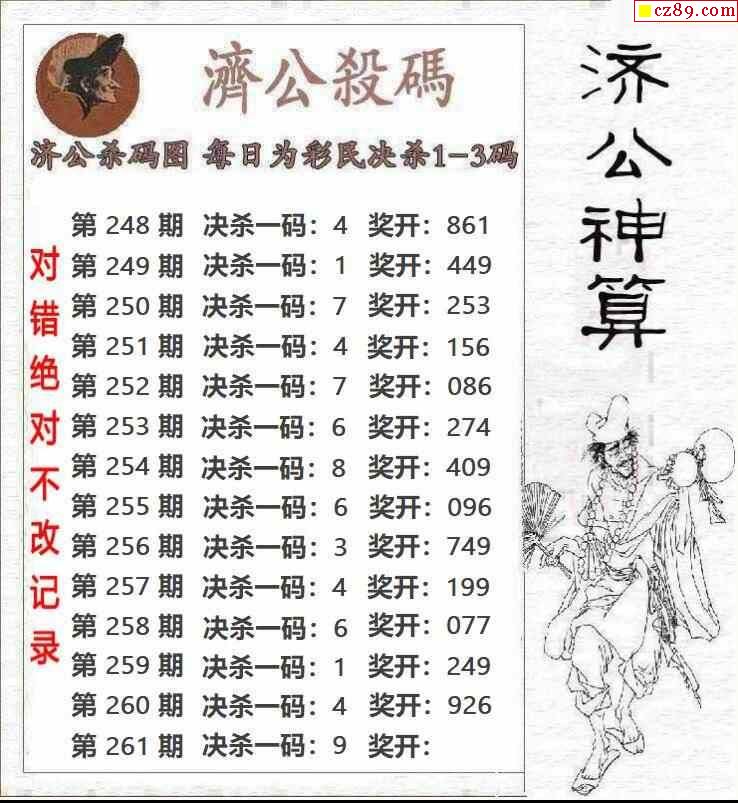 cz89.com
濟公殺碼
济公杀码图 每日为彩民决杀1-3码
第 248 期 决杀一码：4 奖开：861
第 249 期 决杀一码：1 奖开：449
第 250 期 决杀一码：7 奖开：253
第 251 期 决杀一码：4 奖开：156
第 252 期 决杀一码：7 奖开：086
第 253 期 决杀一码：6 奖开：274
第 254 期 决杀一码：8 奖开：409
第 255 期 决杀一码：6 奖开：096
第 256 期 决杀一码：3 奖开：749
第 257 期 决杀一码：4 奖开：199
第 258 期 决杀一码：6 奖开：077
第 259 期 决杀一码：1 奖开：249
第 260 期 决杀一码：4 奖开：926
第 261 期 决杀一码：9 奖开：
对错绝对不改记录
济公神算